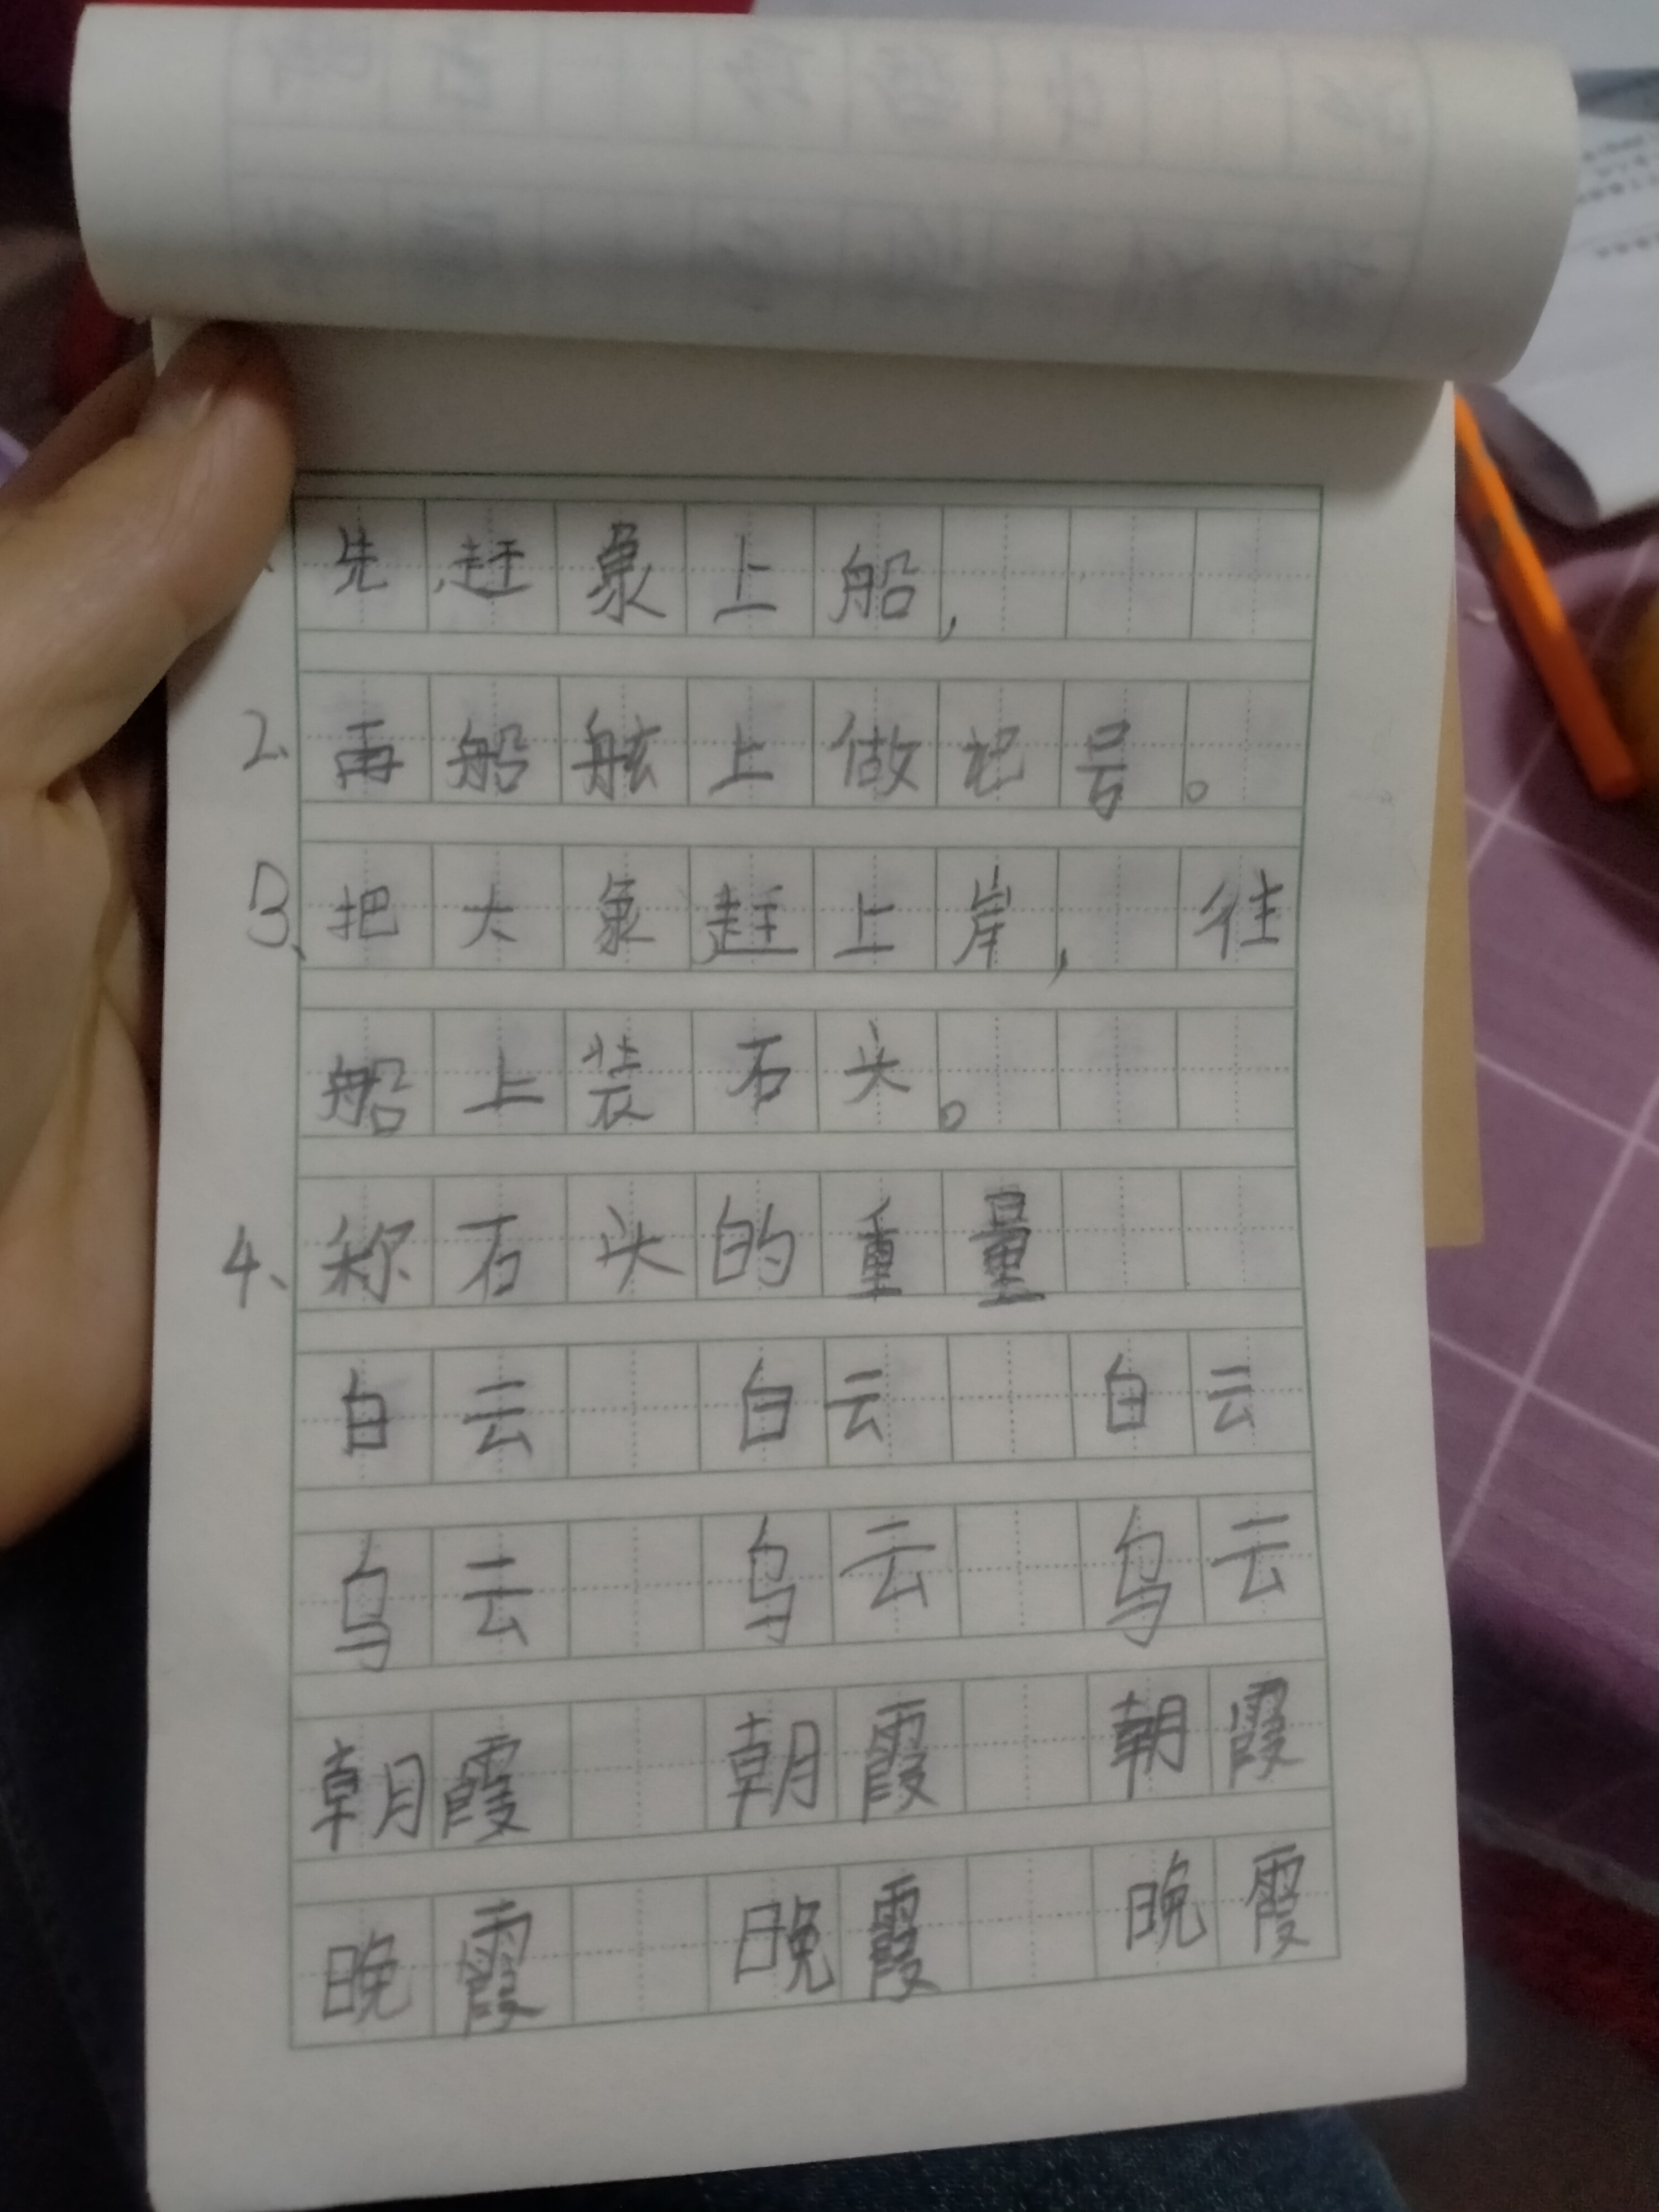 先赶象上船,
2、再船舷上做记号。
3、把大象赶上岸,往
船上装石头。
4、称石头的重量
白云 白云 白云
乌云 乌云 乌云
朝霞 朝霞 朝霞
晚霞 晚霞 晚霞